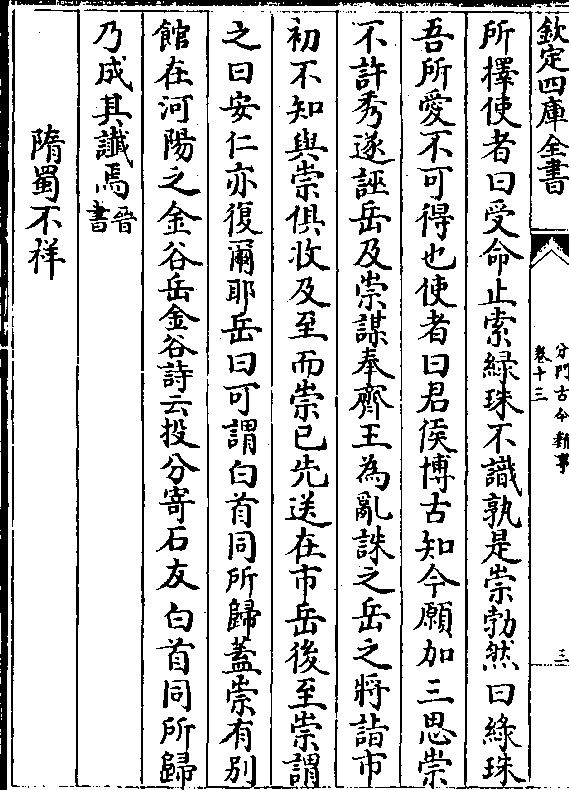 欽定四庫全書
分門古今類事
卷十三
三
所擇使者曰受命止索緑珠不識孰是崇勃然曰綠珠
吾所愛不可得也使者曰君侯博古知今願加三思崇
不許秀遂誣岳及崇謀奉齊王為亂誅之岳之將詣市
初不知與崇俱收及至而崇已先送在市岳後至崇謂
之曰安仁亦復爾耶岳曰可謂白首同所歸蓋崇有别
館在河陽之金谷岳金谷詩云投分寄石友白首同所歸
乃成其讖焉晉書
隋蜀不祥